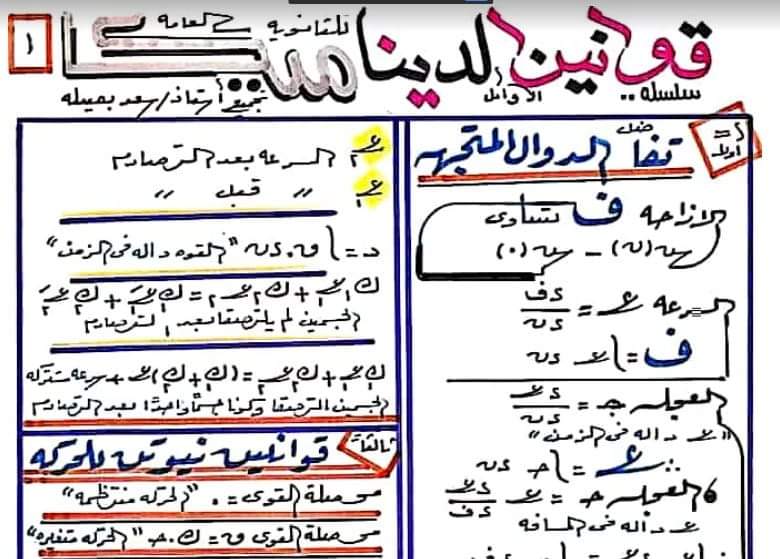 قوانين الديناميكا
للثانوية العامه
سلسله .. الأوائل
تجميع أستاذ/ سعد بصيله
١
أولاً
تفاضل الدوال المتجهه
الإزاحه ف تساوى
س(ن) - س(٠)
السرعه ع = ءف/ءن
ف = ∫ ع ءن
العجله جـ = ءع/ءن
"ع داله فى الزمن"
∴ ع = ∫ جـ ءن
العجله جـ = ع ءع/ءف
ع داله فى المسافه
السرعه بعد التصادم
" قبل "
د = ∫ ق . ءن "القوه داله فى الزمن"
ك١ ع١ + ك٢ ع٢ = ك١ ع١َ + ك٢ ع٢َ
الجسمين لم يلتصقا بعد التصادم
الجسمين التصقا وكونا جسمًا واحدًا بعد التصادم
ثالثاً
قوانين نيوتن للحركه
محصلة القوى = ٠ "الحركه منتظمه"
محصلة القوى ق = ك . جـ "الحركه متغيره"